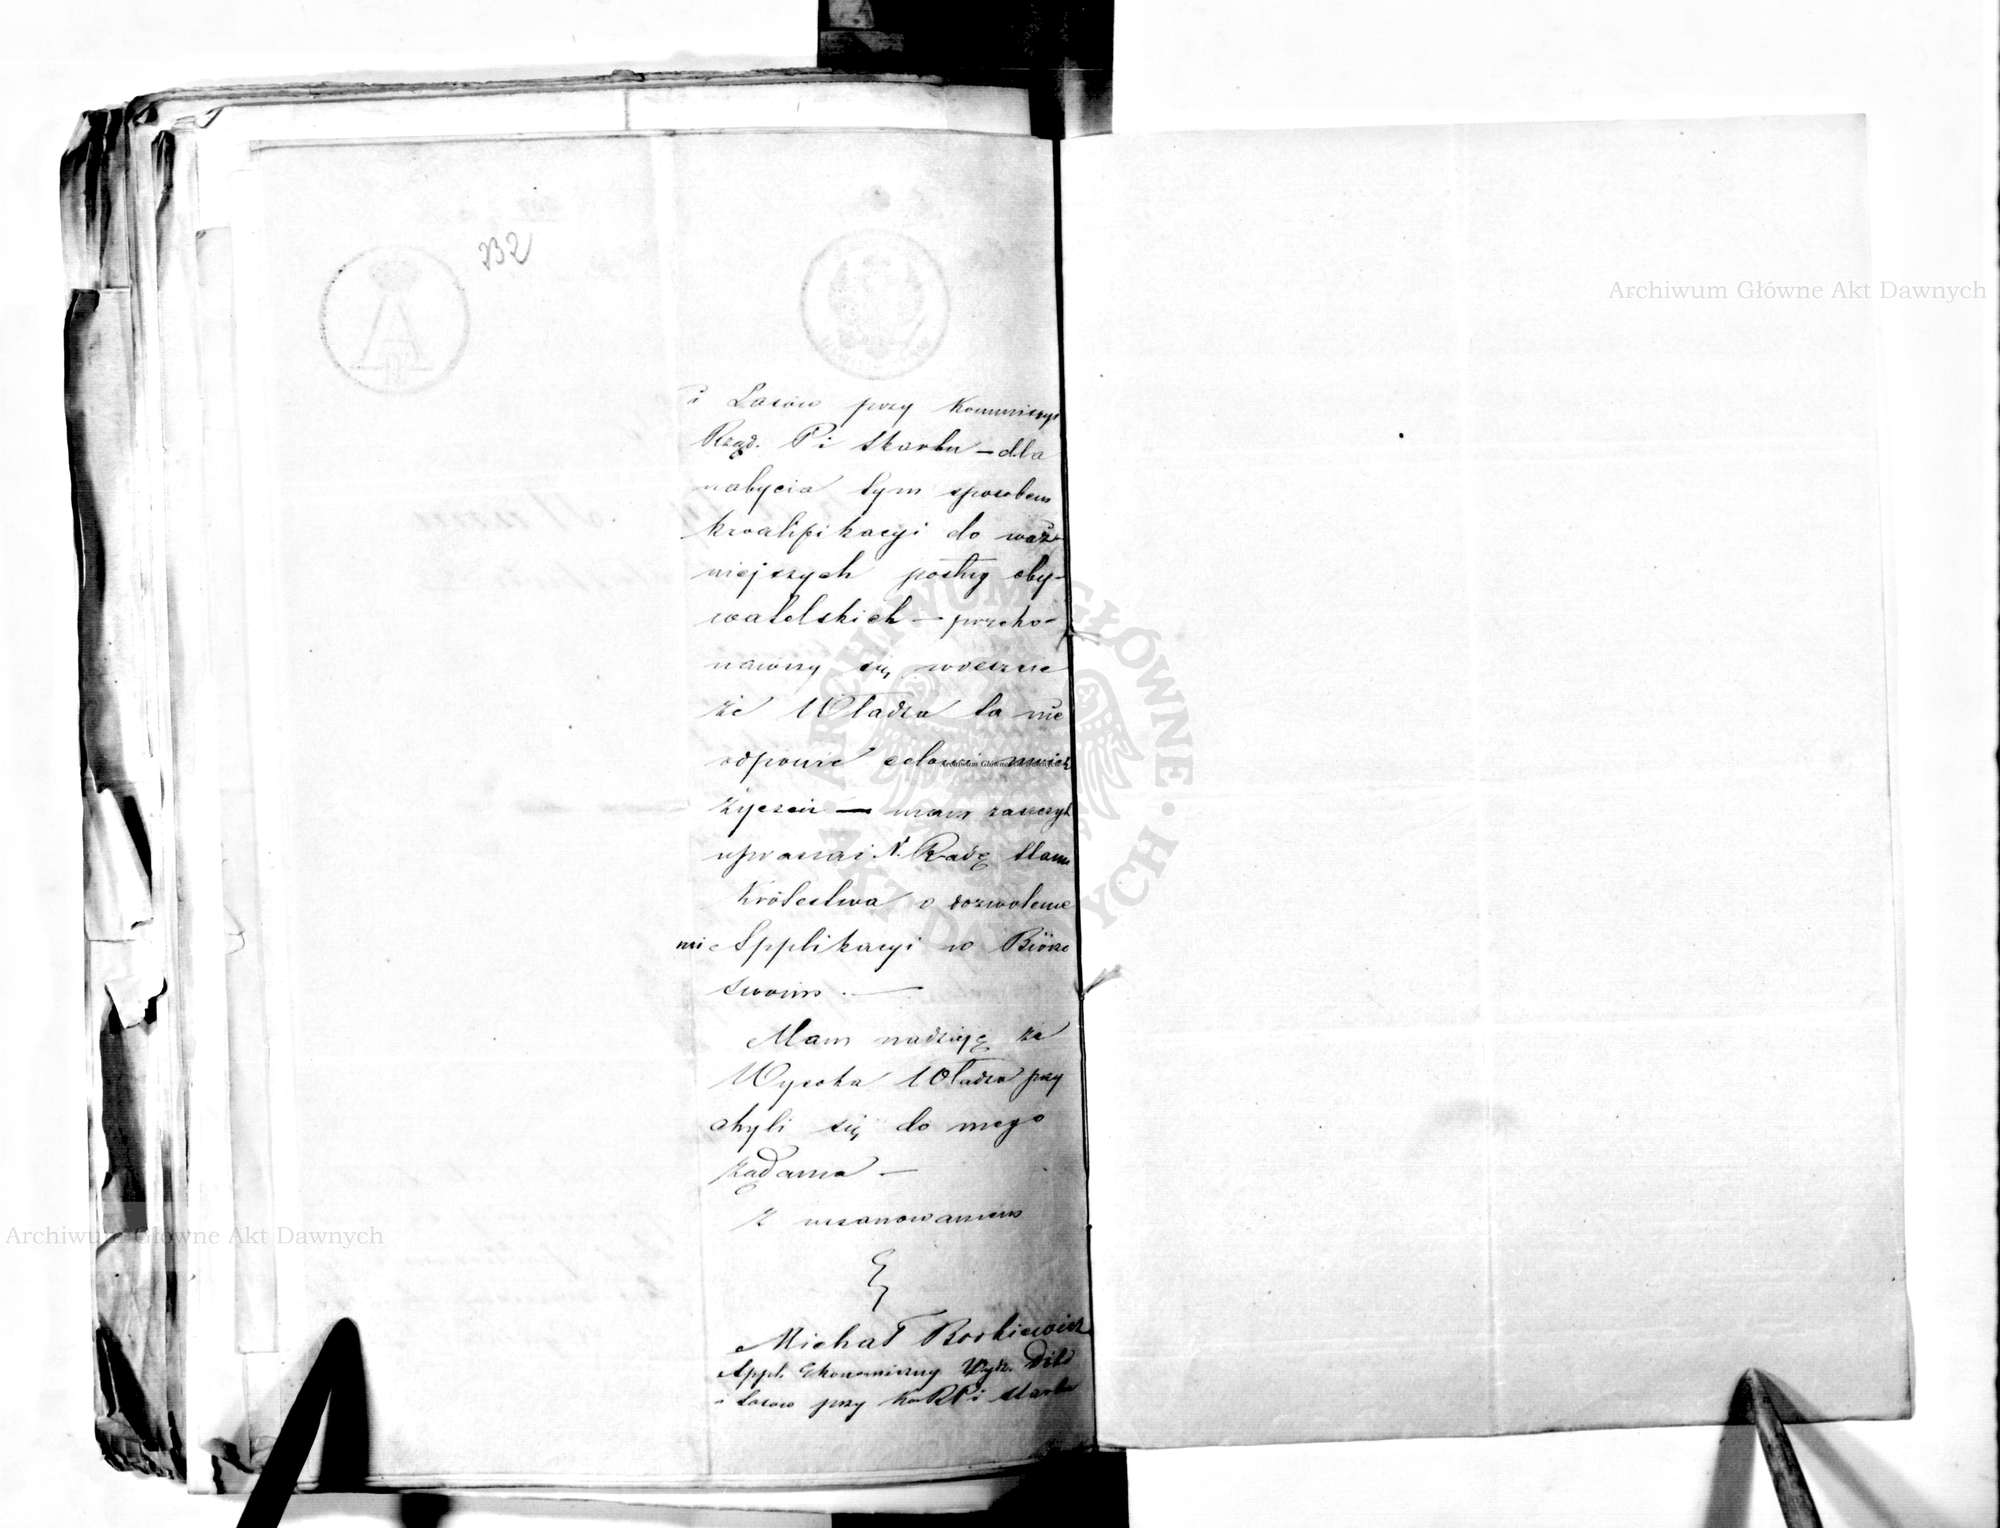 232
i Lasów przy Kommissyi
Rząd. P i Skarbu — dla
nabycia tym sposobem
kwalifikacyi do waż-
niejszych posług oby-
watelskich — przeko-
nawszy się wreszcie
że Władza ta nie
odpowie celowi moich
życzeń — mam zaszczyt
upraszać N. Radę Stanu
Królestwa o dozwolenie
mi Applikacyi w Biórze
swoim. —
Mam nadzieję że
Wysoka Władza przy
chyli się do mego
żądania —
Z uszanowaniem
Michał Borkiewicz
Appl. Ekonomiczny Wydz. Dóbr
i Lasów przy KRP i Skarbu
Archiwum Główne Akt Dawnych
Archiwum Główne Akt Dawnych
Archiwum Główne Akt Dawnych
ARCHIWUM GŁÓWNE AKT DAWNYCH